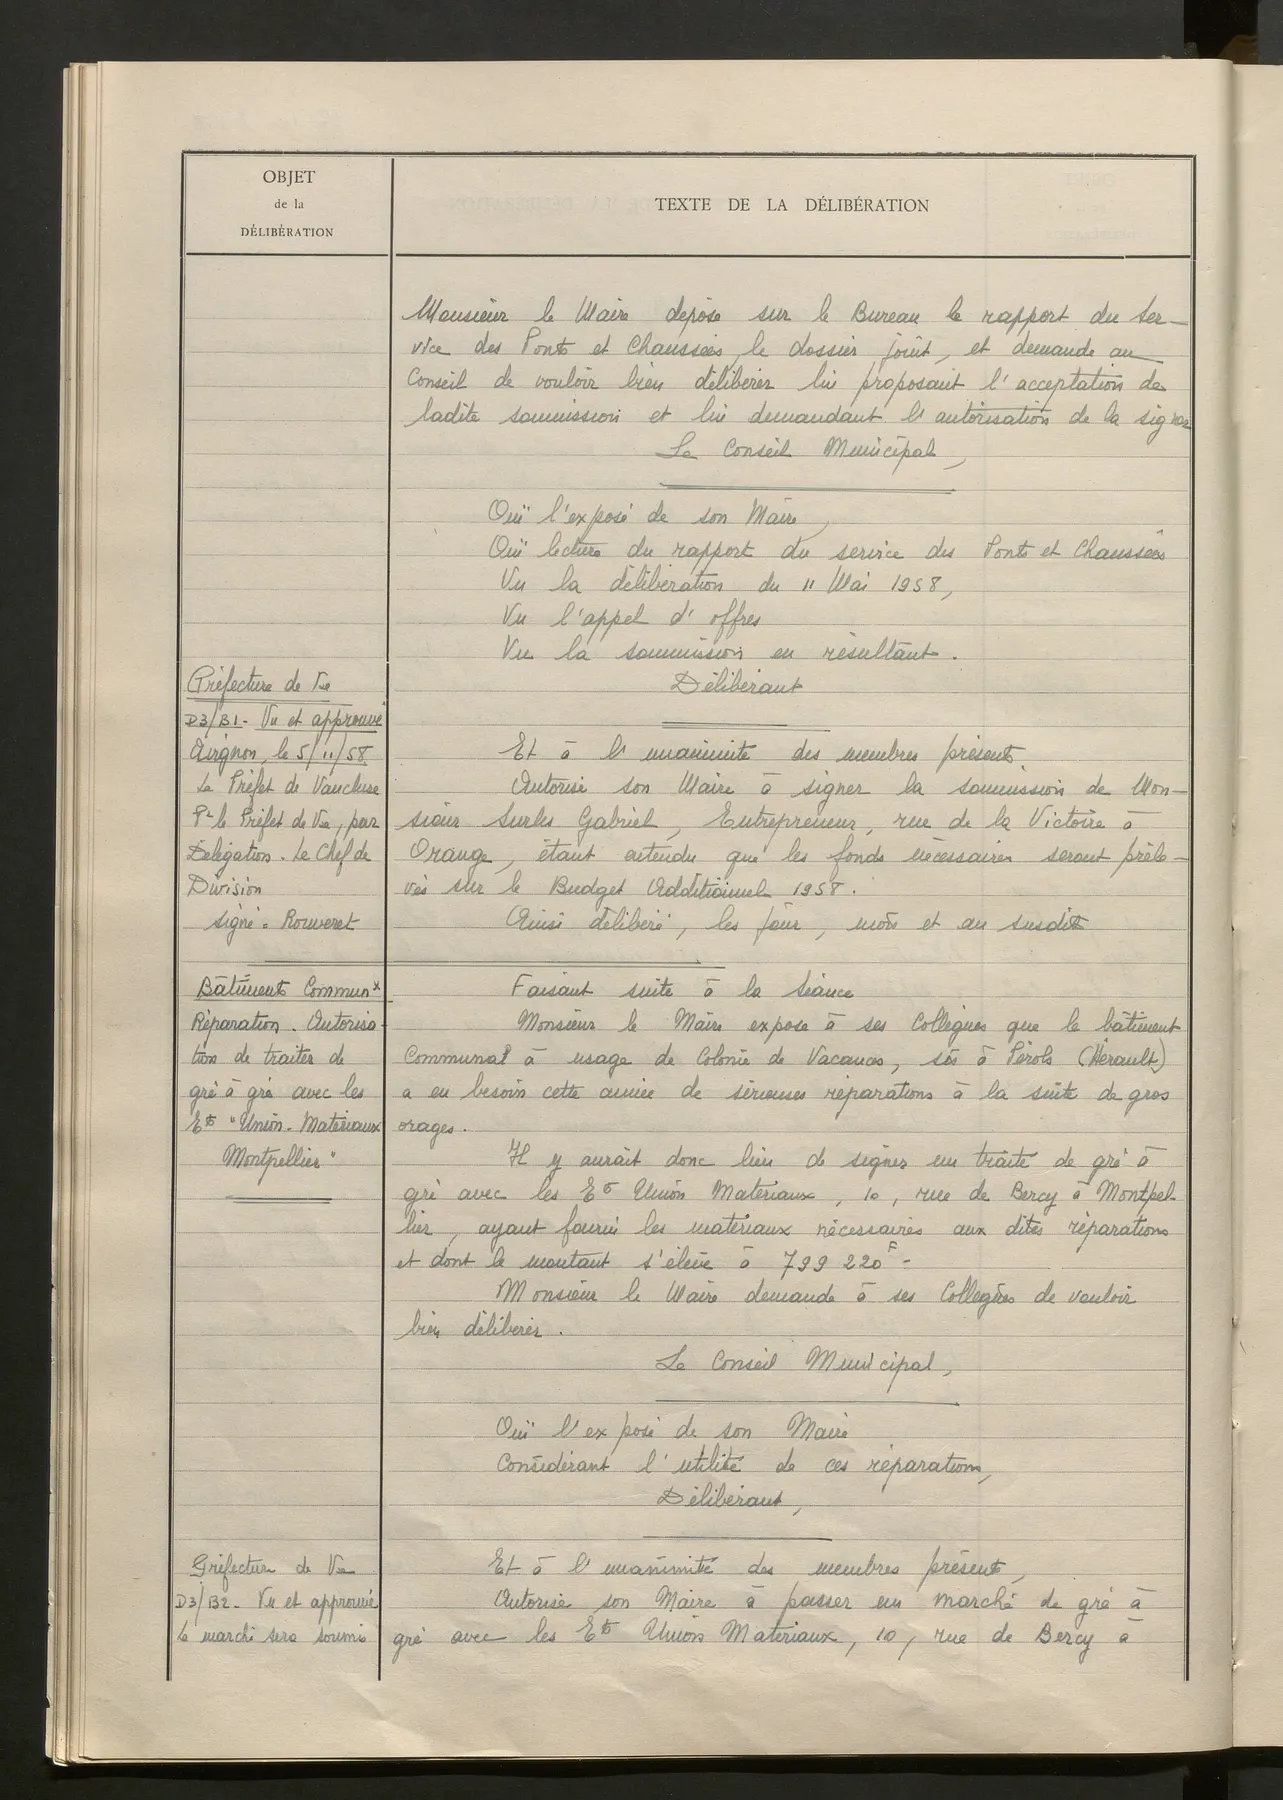 OBJET
de la
DÉLIBÉRATION
TEXTE DE LA DÉLIBÉRATION
Monsieur le Maire dépose sur le Bureau le rapport du Ser-
vice des Ponts et Chaussées, le dossier joint, et demande au
Conseil de vouloir bien délibérer lui proposant l'acceptation de
ladite soumission et lui demandant l'autorisation de la signer
Le Conseil Municipal,
Ouï l'exposé de son Maire,
Ouï lecture du rapport du service des Ponts et Chaussées
Vu la délibération du 11 Mai 1958,
Vu l'appel d'offres
Vu la soumission en résultant.
Délibérant
Et à l'unanimité des membres présents.
Autorise son Maire à signer la soumission de Mon-
sieur Surles Gabriel, Entrepreneur, rue de la Victoire à
Orange, étant entendu que les fonds nécessaires seront préle-
vés sur le Budget Additionnel 1958.
Ainsi délibéré, les jour, mois et an susdits
Préfecture de Vse
D3/B1- Vu et approuvé
Avignon, le 5/11/58
Le Préfet de Vaucluse
Pr le Préfet de Vse, par
Délégation. Le Chef de
Division
signé: Rouveret
Bâtiments Commun x
Réparation. Autorisa-
tion de traiter de
gré à gré avec les
Ets "Union-Matériaux
Montpellier"
Faisant suite à la séance
Monsieur le Maire expose à ses Collègues que le bâtiment
Communal à usage de Colonie de Vacances, sis à Pérols (Hérault)
a eu besoin cette année de sérieuses réparations à la suite de gros
orages.
Il y aurait donc lieu de signer un traité de gré à
gré avec les Ets Union Matériaux, 10, rue de Bercy à Montpel-
lier, ayant fourni les matériaux nécessaires aux dites réparations
et dont le montant s'élève à 799 220 F -
Monsieur le Maire demande à ses Collègues de vouloir
bien délibérer.
Le Conseil Municipal,
Ouï l'exposé de son Maire
Considérant l'utilité de ces réparations,
Délibérant,
Et à l'unanimité des membres présents,
Autorise son Maire à passer un marché de gré à
gré avec les Ets Union Matériaux, 10, rue de Bercy à
Préfecture de Vse
D3/B2- Vu et approuvé
Le marché sera soumis